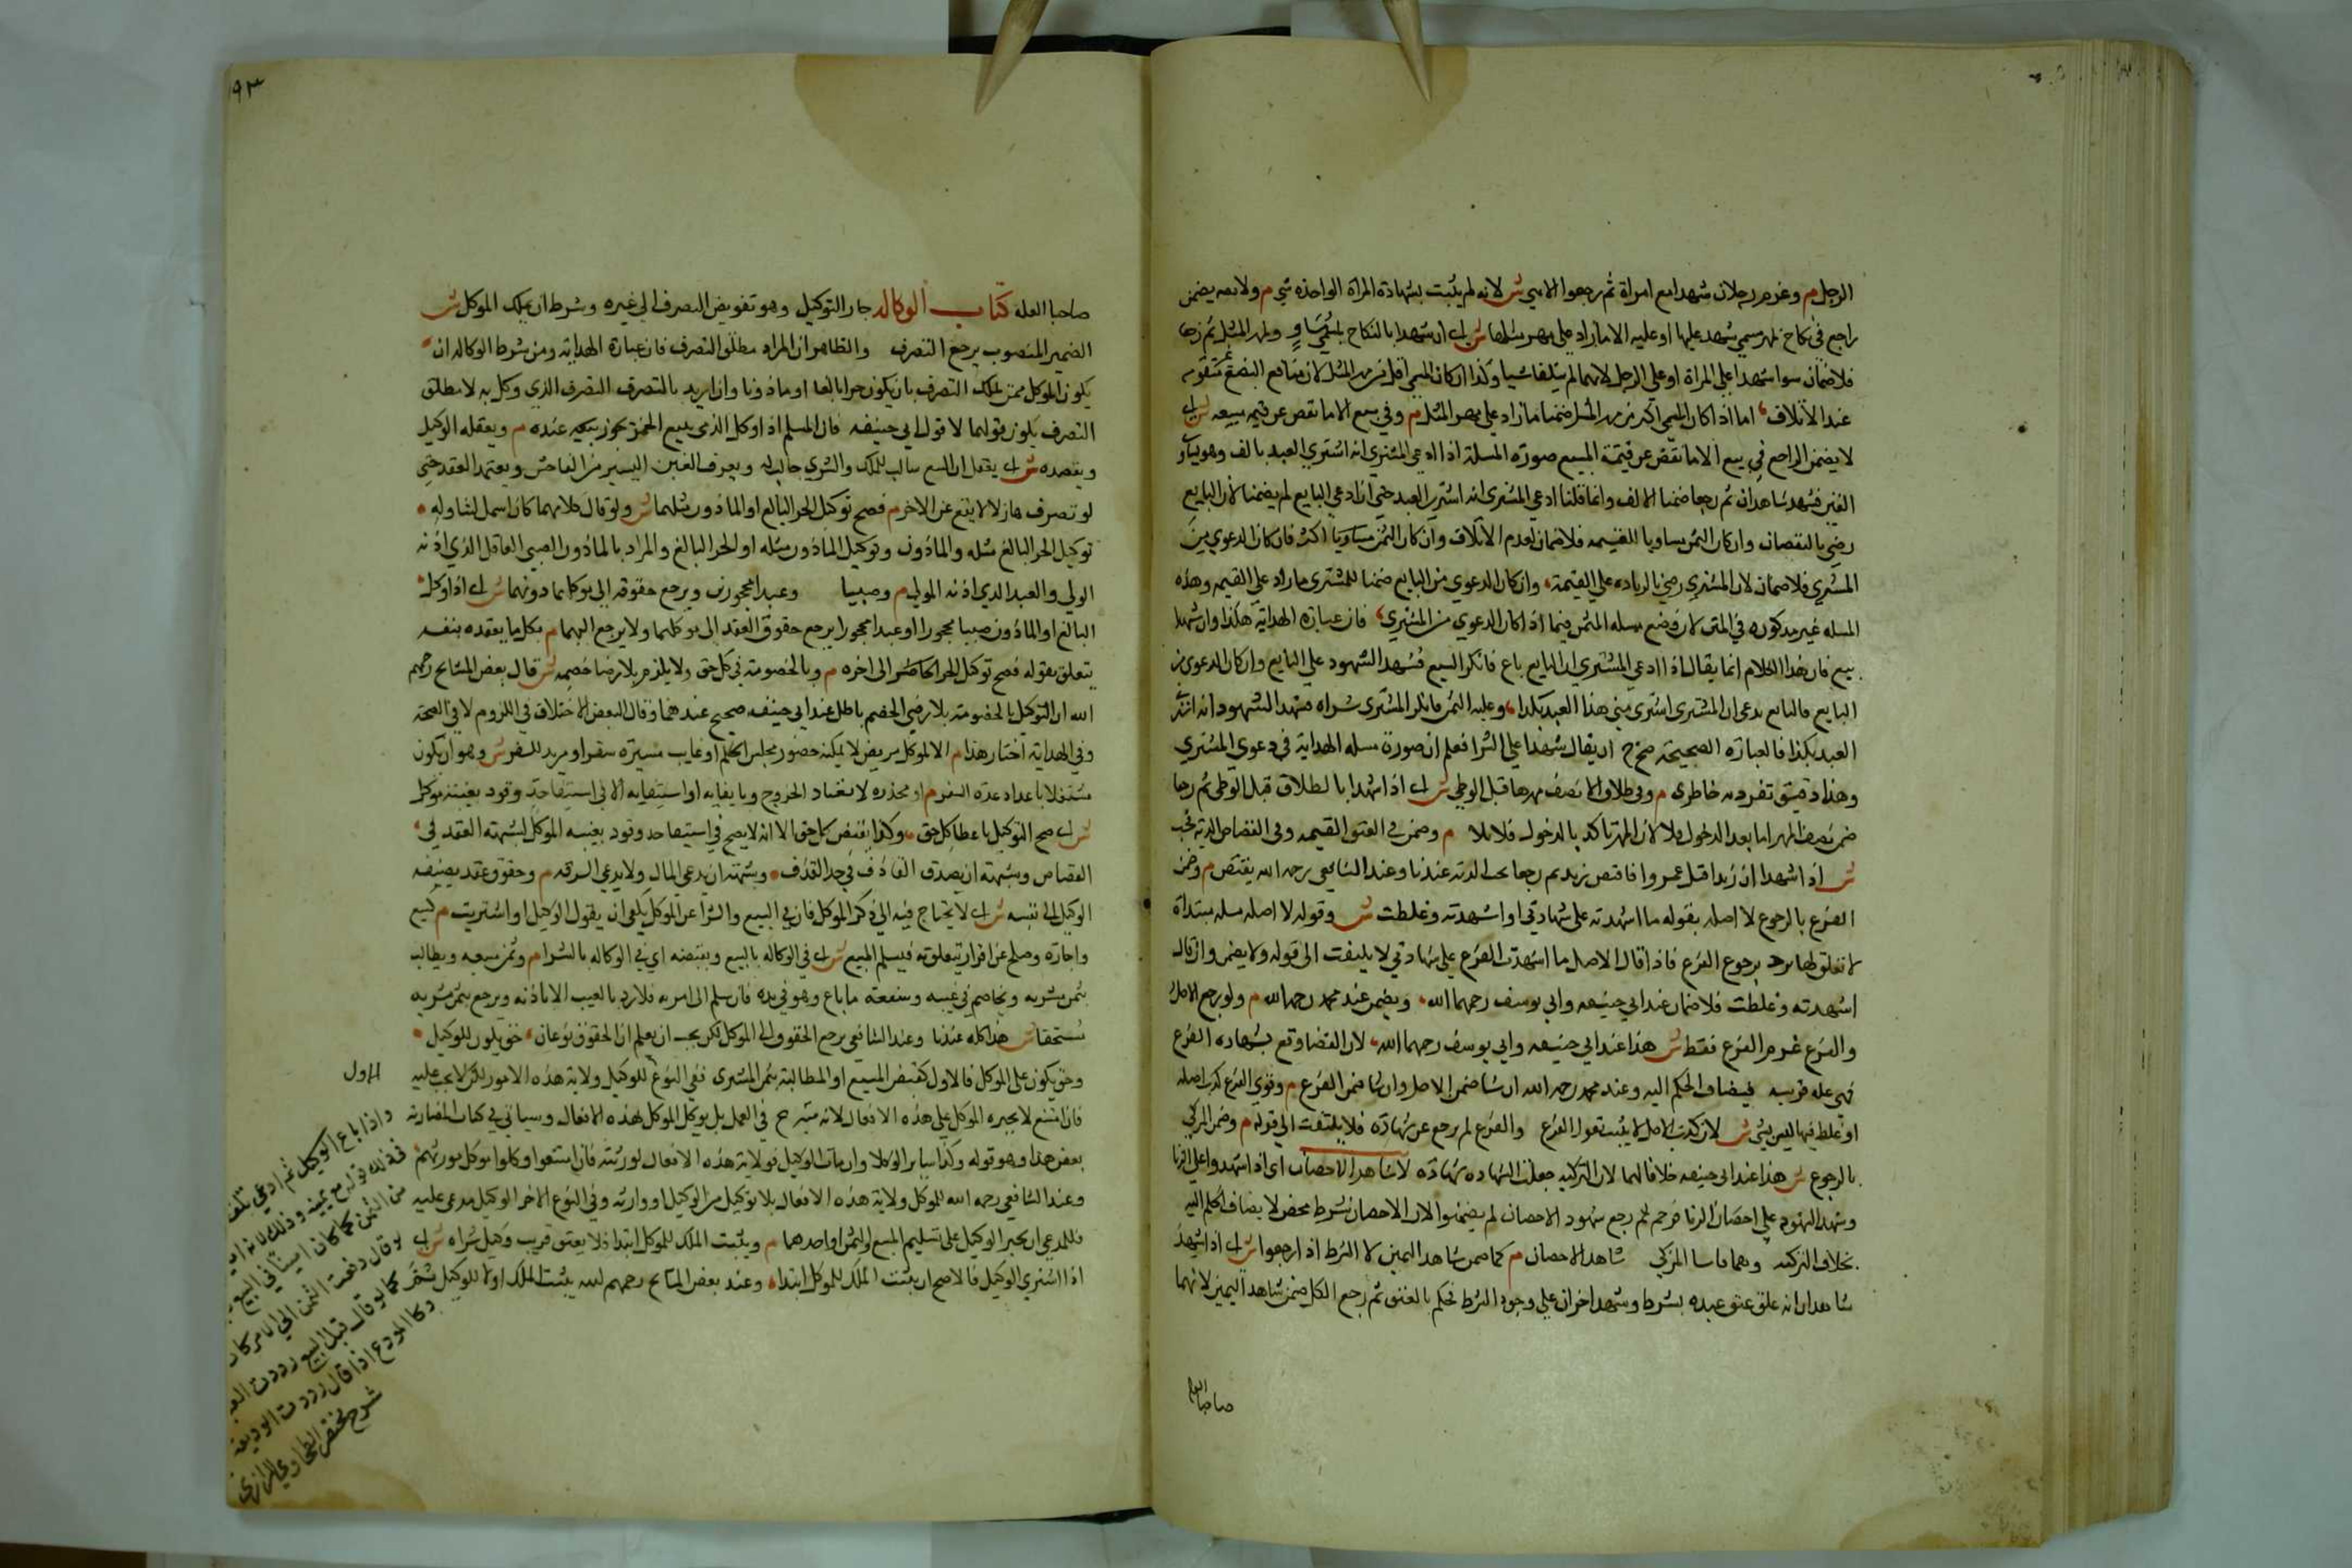 الرجل م وغرم رجلان شهدا مع امراة ثم رجعوا لا هي ش لانه لم يثبت بشهادة المراة الواحدة شي م ولا يضمن
راجع في نكاح بمهر مسمي شهد عليها او عليه الا ما زاد علي مهر مثلها ش اي ان شهدا بالنكاح
فلا ضمان سوا شهدا علي المراة او علي الرجل لانهما لم يتلفا شيا وكذا ان كان المسمي اقل من مهر المثل لان منافع البضع غير متقومه
عند الاتلاف اما اذا كان المسمي اكثر من مهر المثل ضمنا ما زاد علي مهر المثل م وفي بيع الا ما نقص عن قيمه مبيعه ش اي
لا يضمن الراجع في بيع الا ما نقص عن قيمة المبيع صورة المسلة اذا ادعي المشتري انه اشتري العبد بالف وهو يساوي
الفين فشهد شاهدان ثم رجعا ضمنا الالف وانما قلنا ادعي المشتري انه اشتري العبد حتي ان ادعي البايع لم يضمنا لان البايع
رضي بالنقصان وان كان الثمن مساويا للقيمه فلا ضمان لعدم الاتلاف وان كان الثمن اكثر فان كان الدعوي من
المشتري فلا ضمان لان المشتري رضي بالزياده علي القيمة وان كان الدعوي من البايع ضمنا للمشتري ما زاد علي القيمه وهذه
المسله غير مذكوره في المتن لان وضع مسله المتن فيما اذا كان الدعوي من المشتري فان عبارة الهداية هكذا وان شهدا
ببيع فان هذا الكلام انما يقال اذا ادعي المشتري ان البايع باع فانكر البيع فشهد الشهود علي البايع وان كان الدعوي من
البايع فالبايع يدعي ان المشتري اشتري مني هذا العبد بكذا وعليه الثمن فانكر المشتري شراه فشهد الشهود انه اشتري
العبد بكذا فالعبارة الصحيحة ان يقال شهدا علي الشرا فعلم ان صورة مسله الهداية في دعوي المشتري
وهذا دقيق تفرد به خاطري م وفي طلاق الا نصف مهرها قبل الوطي ش اي اذا شهدا بالطلاق قبل الوطي ثم رجعا
ضمن نصف المهر اما بعد الدخول فلا لان المهر تاكد بالدخول فلا م وضمن في العتق القيمه وفي القصاص الدية
ش اذا شهدا ان زيدا قتل عمروا فاقتص زيد ثم رجعا يجب الدية عندنا وعند الشافعي رحمه الله يقتص م وضمن
الفرع بالرجوع لا اصله بقوله ما اشهدته علي شهادتي او اشهدته وغلطت ش وقوله لا اصله مسله مبتداة
لا تعلق لها برجوع الفرع فاذا قال الاصل ما اشهدت الفرع علي شهادتي لا يلتفت الي قوله ولا يضمن وان قال
اشهدته وغلطت فلا ضمان عند ابي حنيفه وابي يوسف رحمهما الله ويضمن عند محمد رحمه الله م ولو رجع الاصل
والفرع غرم الفرع فقط ش هذا عند ابي حنيفه وابي يوسف رحمهما الله لان القضا وقع بشهاده الفرع
فهي عله قريبه فيضاف الحكم اليه وعند محمد رحمه الله ان شا ضمن الاصل وان شا ضمن الفرع م وقول الفرع كذب اصله
او غلط فيها ليس بشي ش لان كذب الاصل لا يثبت بقول الفرع والفرع لم يرجع عن شهادته فلا يلتفت الي قوله م وضمن المزكي
بالرجوع ش هذا عند ابي حنيفه خلافا لهما لان التزكيه جعلت الشهاده شهادة لا شاهد الاحصان اي اذا شهدوا علي الزنا
وشهد الشهود علي احصان الزنا فرجم ثم رجع شهود الاحصان لم يضمنوا لان الاحصان شرط محض لا يضاف الحكم اليه
بخلاف التزكيه وهما قاسا المزكي شاهد الاحصان م كما ضمن شاهد اليمين لا الشرط اذا رجعوا ش اي اذا شهد
شاهدان انه علق عتق عبده بشرط وشهد اخران علي وجود الشرط فحكم بالعتق ثم رجع الكل ضمن شاهد اليمين لانهما
صاحبا العله
٩٣
صاحبا العله كتاب الوكاله جاز التوكيل وهو تفويض التصرف الي غيره وشرط ان يملك الموكل ش
الضمير المنصوب يرجع التصرف والظاهر ان المراد مطلق التصرف فان عبارة الهداية ومن شرط الوكاله ان
يكون الموكل ممن يملك التصرف بان يكون حرا بالغا او ماذونا وان اريد بالتصرف التصرف الذي وكل به لا مطلق
التصرف يكون قولهما لا قول ابي حنيفه فان المسلم اذا وكل الذمي ببيع الخمر يجوز عنده م ويعقله الوكيل
ويقصده ش اي يعقل ان البيع سالب للملك والشري جالب له ويعرف الغبن اليسير من الفاحش ويعتمد العقد حتي
لو تصرف هازلا لا يقع عن الامر م فصح توكيل الحر البالغ او الماذون مثلهما ش ولو قال كلا منهما كان اسمل لتناوله
توكيل الحر البالغ مثله والماذون وتوكيل الماذون مثله او الحر البالغ والمراد بالماذون الصبي العاقل الذي اذنه
الولي والعبد الذي اذنه المولي م وصبيا وعبدا محجورين ويرجع حقوقه الي موكلهما دونهما ش اي اذا وكل
البالغ او الماذون صبيا محجورا او عبدا محجورا يرجع حقوق العقد الي موكلهما ولا يرجع اليهما م بكل ما يعقده بنفسه
يتعلق بقوله فصح توكيل الحر الي اخره م وبالخصومة في كل حق ولا يلزم بلا رضا خصمه ش قال بعض المشايخ رحمهم
الله ان التوكيل بالخصومة بلا رضي الخصم باطل عند ابي حنيفه صحيح عندهما وقال البعض الاختلاف في اللزوم لا في الصحة
وفي الهداية اختار هذا م الا لموكل مريض لا يمكنه حضور مجلس الحكم او غايب مسيرة سفر او مريد للسفر ش وهو ان يكون
مشتغلا باعداد عدة السفر م او مخدره لا تعتاد الخروج وبايفايه او استيفايه الا في استيفا حد وقود بغيبة موكل
ش اي صح التوكيل باعطا كل حق وكذا بقبض كل حق الا انه لا يصح في استيفا حد وقود بغيبه الموكل لشبهة العفو في
القصاص وشبهة ان يصدق القاذف في حد القذف وشبهة ان يدعي المال ولا يدعي السرقه م وحقوق عقد يضيفه
الوكيل الي نفسه ش اي لا يحتاج فيه الي ذكر الموكل فان في البيع والشرا عن الموكل يكفي ان يقول الوكيل بعت او اشتريت م كبيع
واجارة وصلح عن اقرار يتعلق به فيسلم المبيع ش اي في الوكاله بالبيع ويقبضه اي في الوكاله بالشرا م وثمن مبيعه ويطالب
بثمن مشريه ويخاصم في عيبه وشفعة ما باع وهو في يده فان سلم الي امره فلا رد بالعيب الا باذنه ويرجع بثمن مشريه
مستحقا ش هذا كله عندنا وعند الشافعي يرجع الحقوق الي الموكل لكن يجب ان يعلم ان الحقوق نوعان حق يكون للوكيل
وحق يكون علي الموكل فالاول كقبض المبيع او المطالبة بثمن المشتري ففي النوع الاول للوكيل ولاية هذه الامور لكن لا يجب عليه
فان امتنع لا يجبره الموكل علي هذه الافعال لانه متبرع في العمل بل يوكل الموكل لهذه الافعال وسياتي في كتاب المضاربة
بعض هذا وهو قوله وكذا ساير الوكلا وان مات الوكيل فولاية هذه الافعال لورثته فان امتنعوا وكلوا موكل مورثهم
وعند الشافعي رحمه الله للموكل ولاية هذه الافعال بلا توكيل من الوكيل او وارثه وفي النوع الاخر الوكيل مدعي عليه
فللمدعي ان يجبر الوكيل علي تسليم المبيع او الثمن او احدهما م ويثبت الملك للموكل ابتدا فلا يعتق قريب وكيل شراه ش اي
اذا اشتري الوكيل فالاصح ان يثبت الملك للموكل ابتدا وعند بعض المشايخ رحمهم الله يثبت الملك اولا للوكيل ثم
الاول
واذا باع الوكيل ثم ادعي تلف
من الثمن كما كان امينا في البيع
لو قال دفعت الثمن الي الامر كان
كما لو قال قبل البيع رددت العبد
وكالمودع اذا قال رددت الوديعة
شرح مختصر الطحاوي للرازي